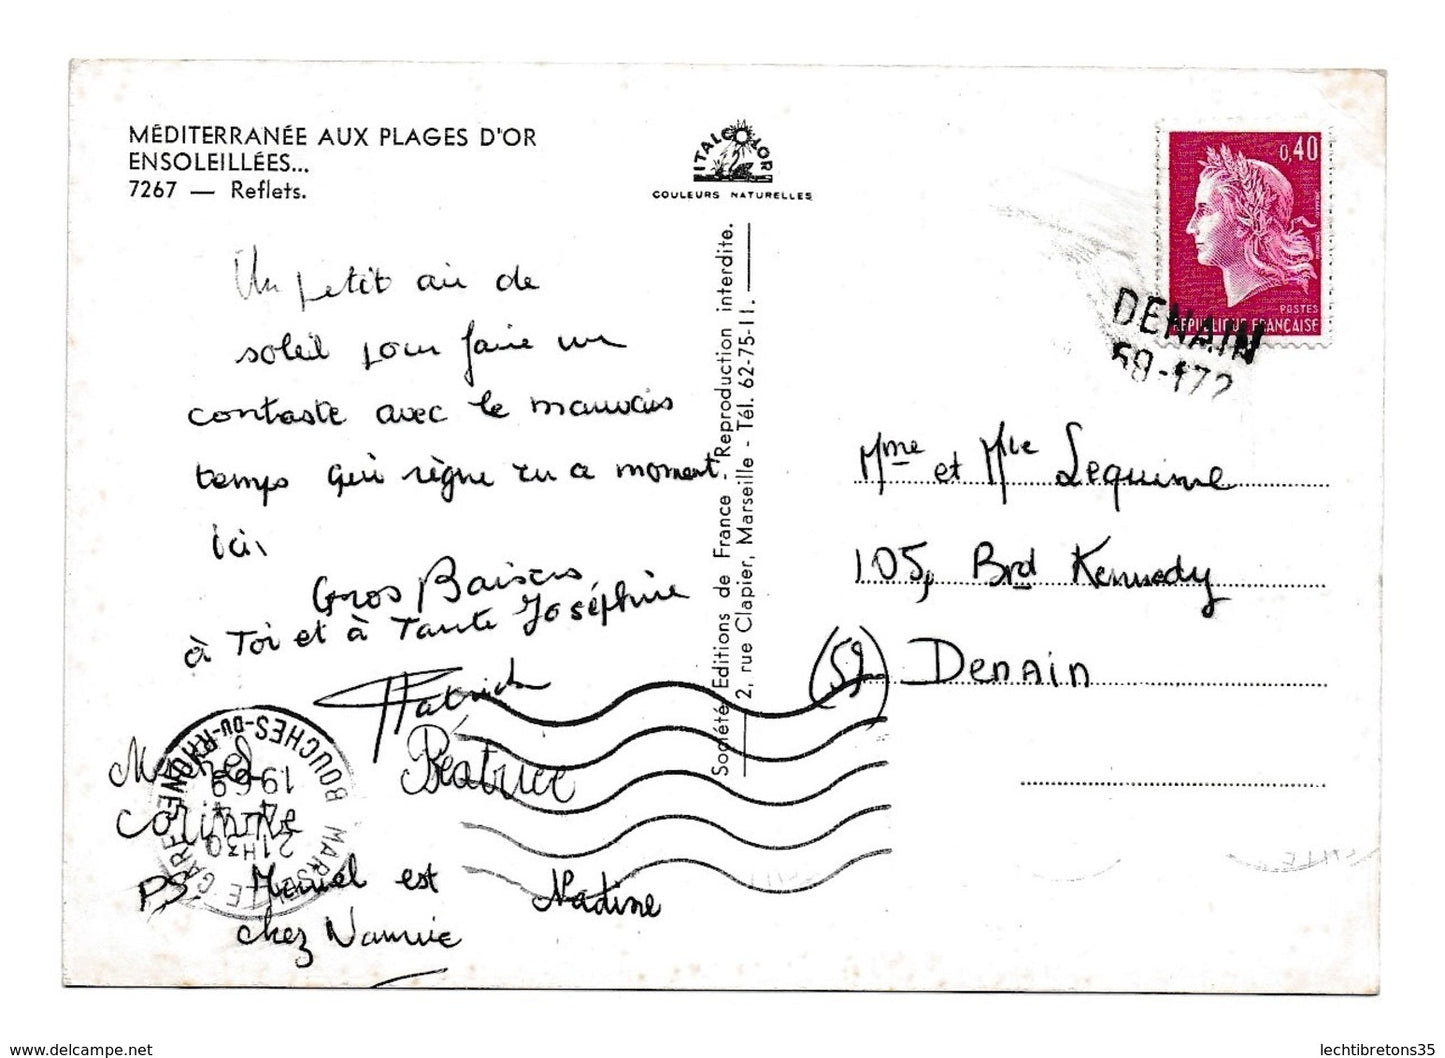 MÉDITERRANÉE AUX PLAGES D'OR
ENSOLEILLÉES...
7267 — Reflets.
ITALCOLOR
COULEURS NATURELLES
0,40
POSTES
REPUBLIQUE FRANÇAISE
DENAIN
Un petit air de
soleil pour faire un
contraste avec le mauvais
temps qui règne en ce moment
ici,
Gros Baisers
à Toi et à Tante Joséphine
Patrick
Béatrice
Corinne
Nadine
PS. Manuel est
chez Namie
BOUCHES-DU-RHÔNE
MARSEILLE GARE
21H30
1969
Société Editions de France - Reproduction interdite.
2, rue Clapier, Marseille - Tél. 62-75-11.
Mme et Mlle Lequime
105, Brd Kennedy
(59) Denain
www.delcampe.net
lechtibretons35